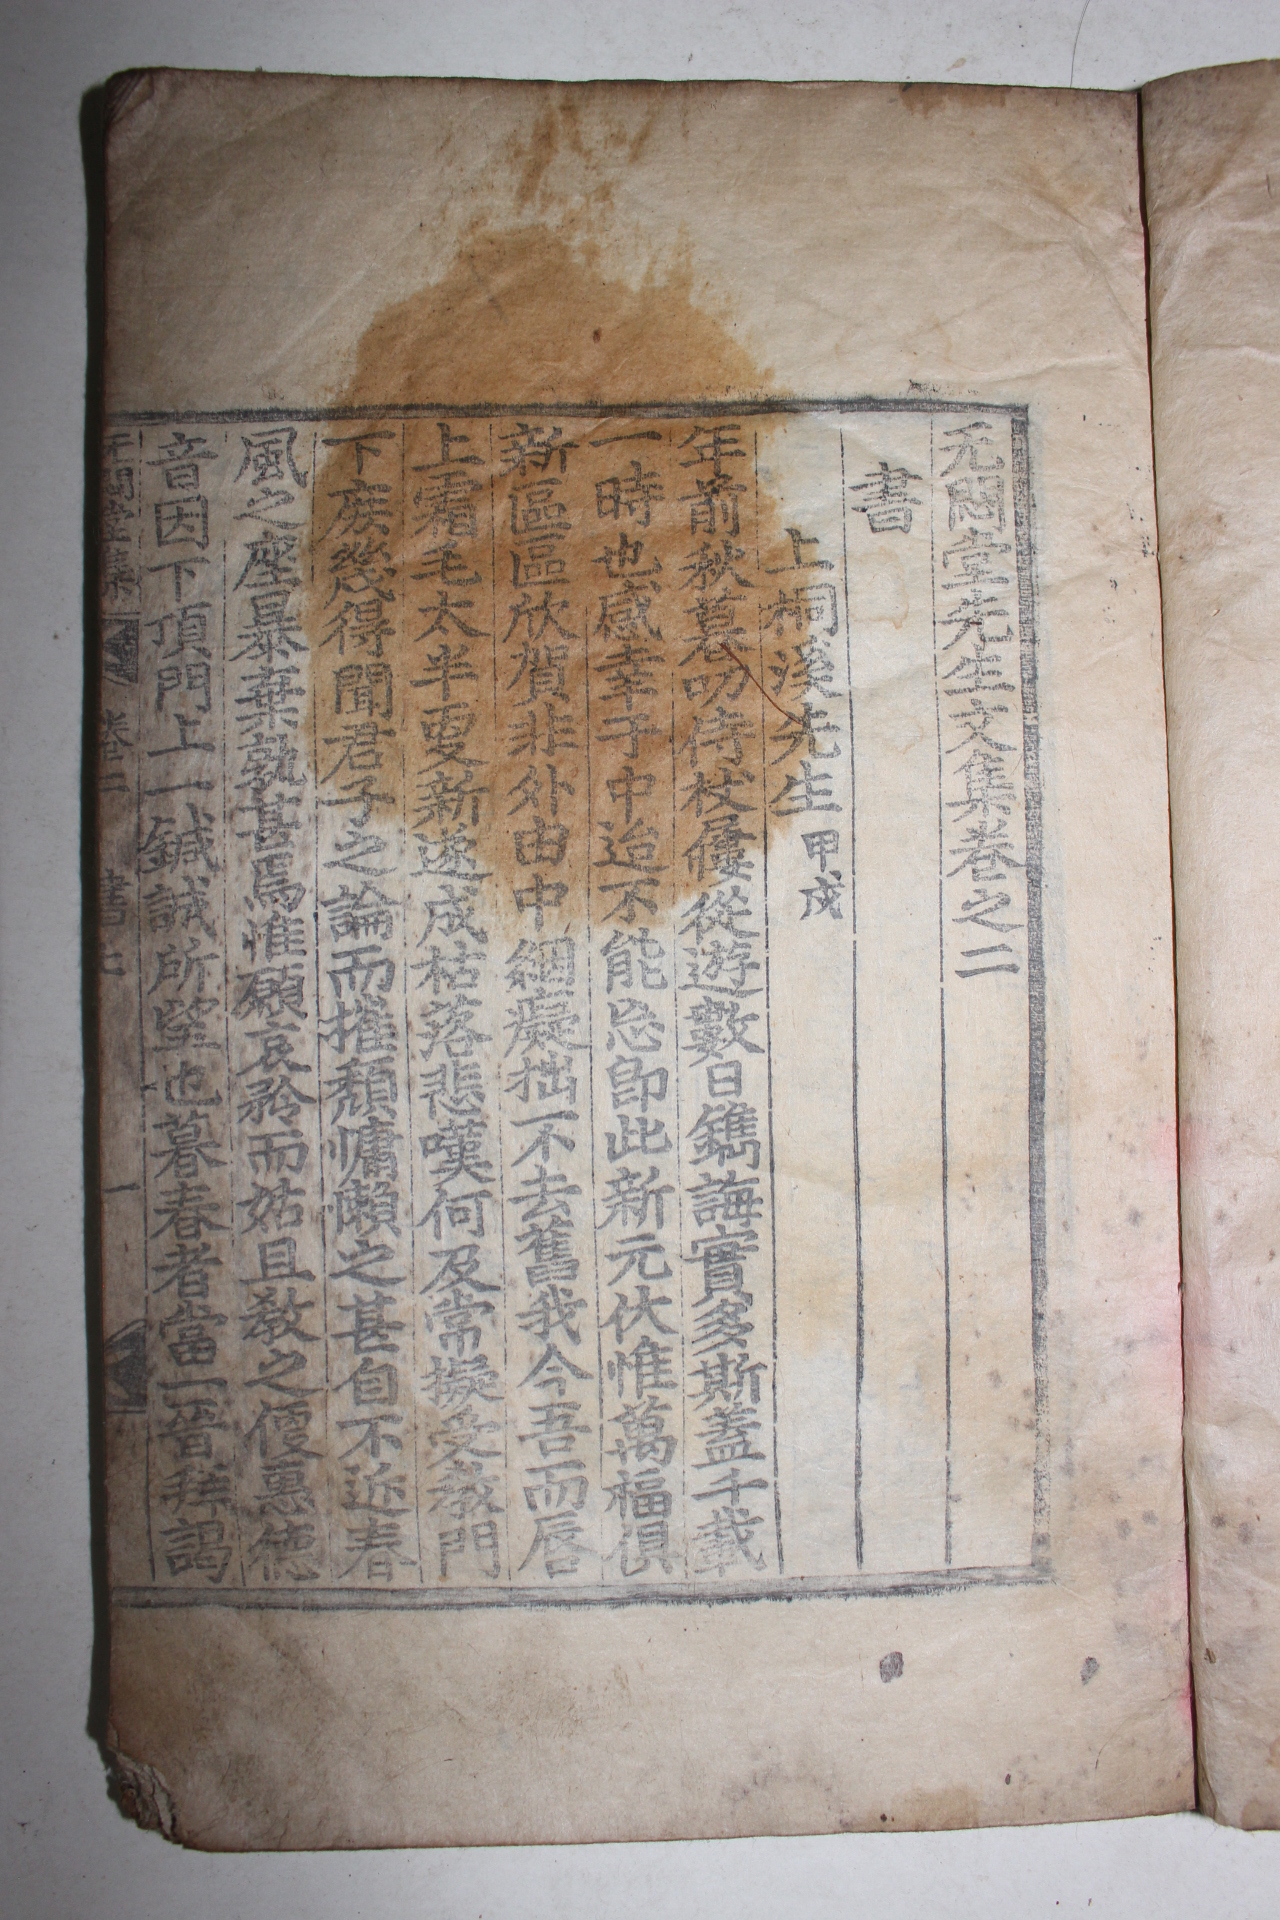 无悶堂先生文集卷之二
書
上桐溪先生 甲戌
年前秋暮叨侍杖屨從遊數日鐫誨實多斯蓋千載
一時也感幸于中迨不能忘卽此新元伏惟萬福俱
新區區欣賀非外由中絪癡拙一不去舊我今吾而唇
上霜毛太半更新遂成枯落悲嘆何及常擬受敎門
下庶幾得聞君子之論而摧頹慵懶之甚自不近春
風之座暴棄孰甚焉惟願哀矜而姑且敎之優惠德
音因下頂門上一鍼誠所望也暮春者當一晉拜謁
无悶堂集 卷之二 書 一